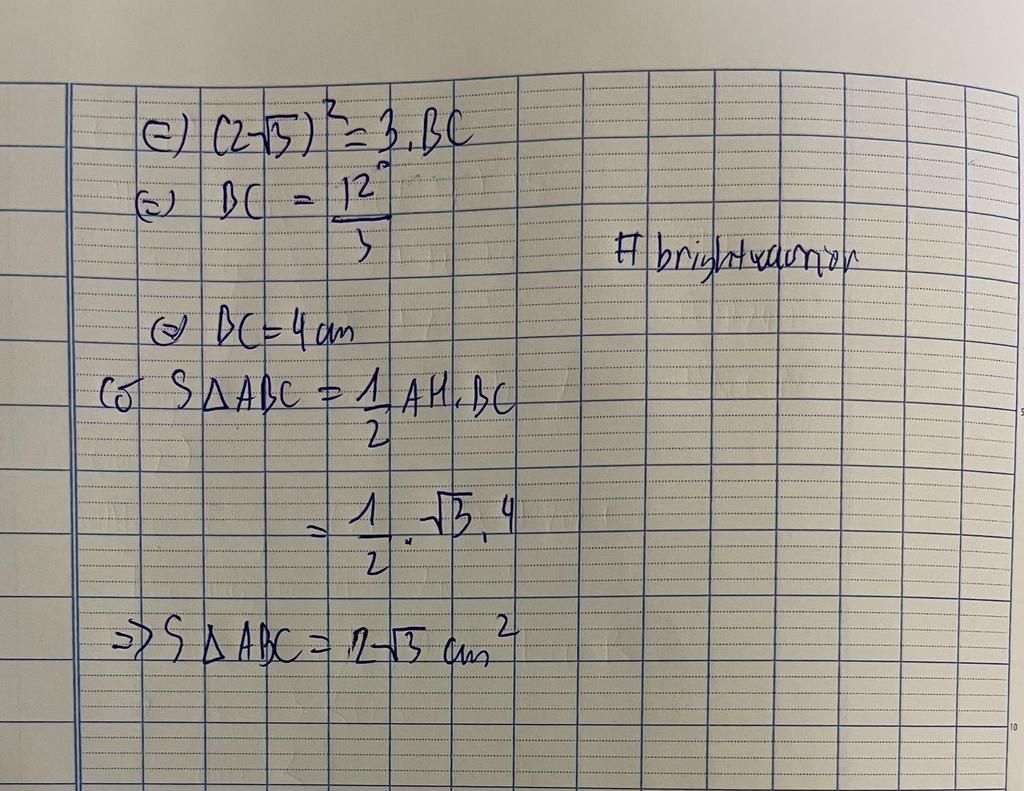 ⇔ (2√3)² = 3.BC
⇔ BC = 12/3
# brightwarrior
⇔ BC = 4 cm
Có S△ABC = 1/2 AH.BC
= 1/2 . √3 . 4
=> S△ABC = 2√3 cm²
5
10